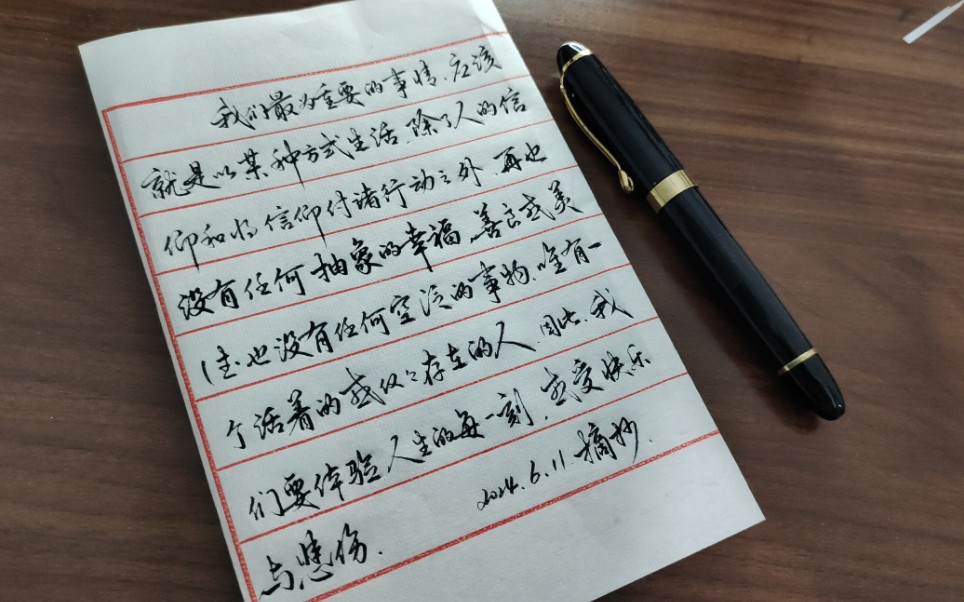 我们最为重要的事情、应该
就是以某种方式生活、除了人的信
仰和将信仰付诸行动之外、再也
没有任何抽象的幸福、善良或美
德、也没有任何空泛的事物、唯有一
个活着的或仅仅存在的人、因此、我
们要体验人生的每一刻、感受快乐
与悲伤.
2024.6.11.摘抄.